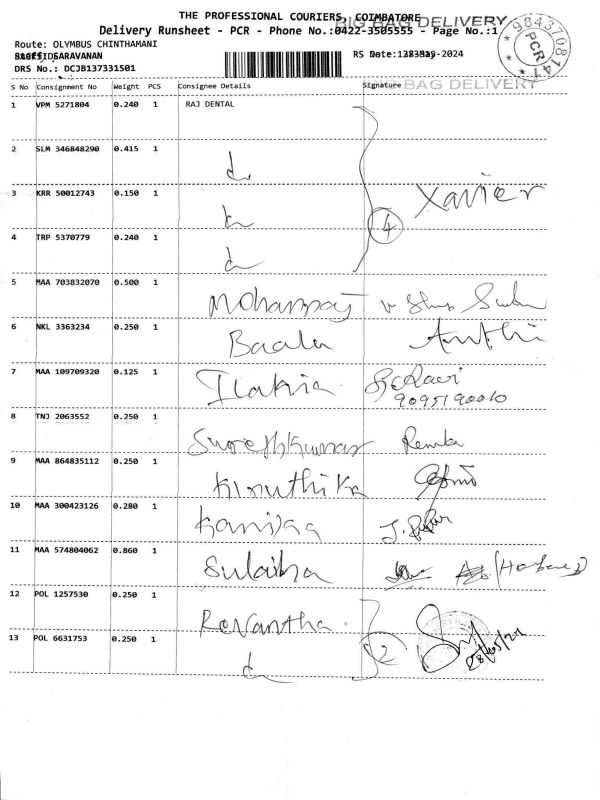 THE PROFESSIONAL COURIERS, COIMBATORE
BIG BAG DELIVERY
Delivery Runsheet - PCR - Phone No.:0422-3505555 - Page No.:1
Route: OLYMBUS CHINTHAMANI
SARAVANAN
RS Date: -2024
DRS No.: DCJB137331501
9843708141
PCR
S No Consignment No Weight PCS Consignee Details Signature
BIG BAG DELIVERY
1 VPM 5271804 0.240 1 RAJ DENTAL
2 SLM 346848290 0.415 1
3 KRR 50012743 0.150 1 Xavier
4
4 TRP 5370779 0.240 1
5 MAA 703832070 0.500 1 Mohanraj
6 NKL 3363234 0.250 1 Baala
7 MAA 109709320 0.125 1 Ilakia
9095190010
8 TNJ 2063552 0.250 1 Sureshkumar Renuka
9 MAA 864835112 0.250 1 Kiruthika
10 MAA 300423126 0.280 1 Kaniska
11 MAA 574804062 0.860 1 Sulaiha
12 POL 1257530 0.250 1 Revantha
2
13 POL 6631753 0.250 1
28/05/24